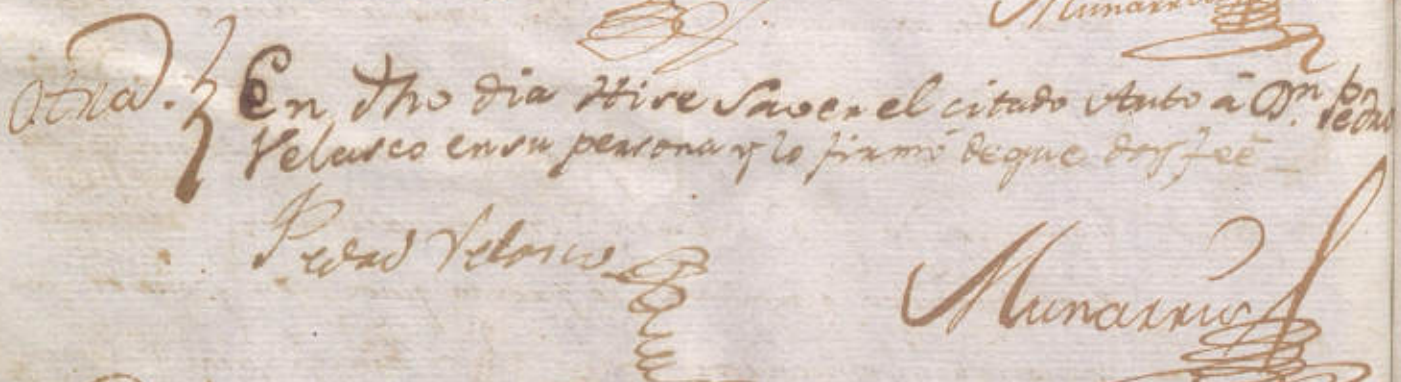 Munarriz
Otra. En dho dia Hise Saver el citado Auto â Dn. Pedro
Velasco en su persona y lo firmó de que doy feê
Pedro Velasco
Munarriz